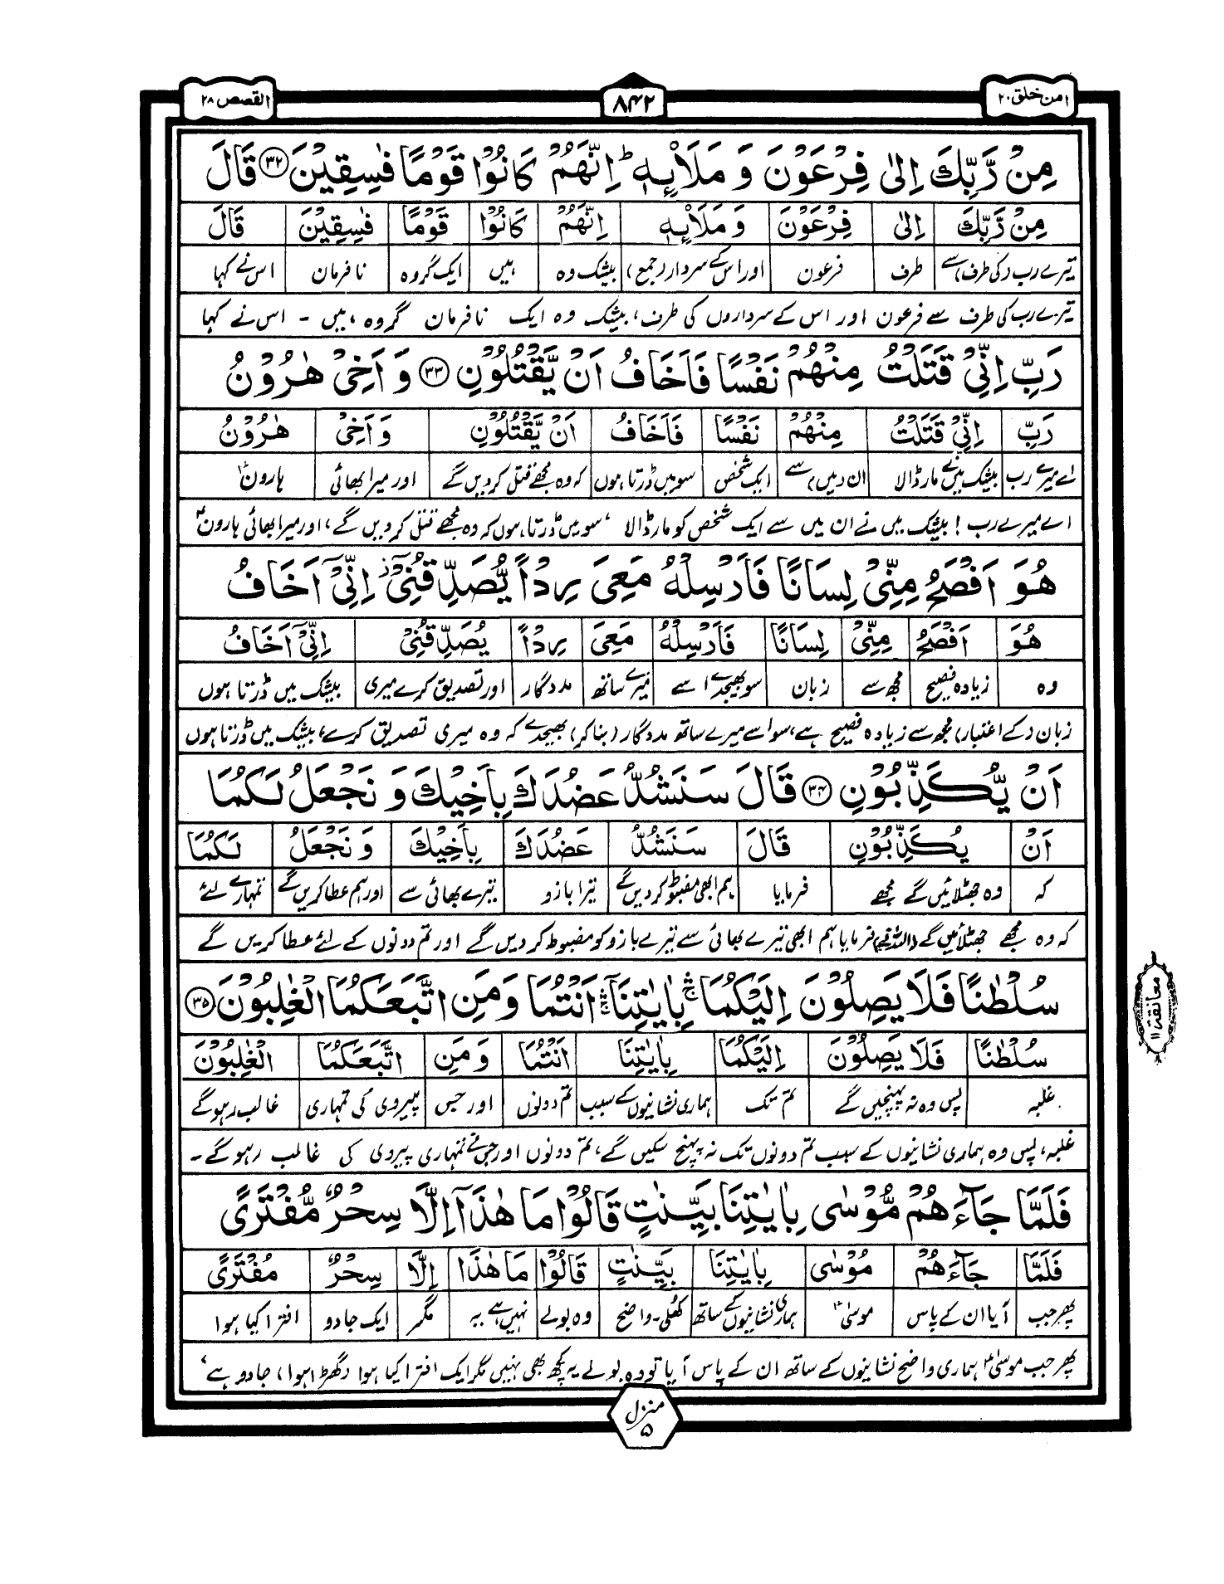 امن خلق ۲۰
۸۴۲
القصص ۲۸
مِنْ رَّبِّكَ اِلٰى فِرْعَوْنَ وَ مَلَا۟ئِهٖ ؕ اِنَّهُمْ كَانُوْا قَوْمًا فٰسِقِيْنَ ۳۲ قَالَ
مِنْ رَّبِّكَ اِلٰى فِرْعَوْنَ وَ مَلَا۟ئِهٖ اِنَّهُمْ كَانُوْا قَوْمًا فٰسِقِيْنَ قَالَ
تیرے رب (کی طرف) سے طرف فرعون اور اس کے سردار (جمع) بیشک وہ ہیں ایک گروہ نافرمان اس نے کہا
تیرے رب کی طرف سے فرعون اور اس کے سرداروں کی طرف، بیشک وہ ایک نافرمان گروہ ہیں - اس نے کہا
رَبِّ اِنِّيْ قَتَلْتُ مِنْهُمْ نَفْسًا فَاَخَافُ اَنْ يَّقْتُلُوْنِ ۳۳ وَ اَخِيْ هٰرُوْنُ
رَبِّ اِنِّيْ قَتَلْتُ مِنْهُمْ نَفْسًا فَاَخَافُ اَنْ يَّقْتُلُوْنِ وَ اَخِيْ هٰرُوْنُ
اے میرے رب بیشک میں نے مار ڈالا ان (میں) سے ایک شخص سو میں ڈرتا ہوں کہ وہ مجھے قتل کر دیں گے اور میرا بھائی ہارونؑ
اے میرے رب! بیشک میں نے ان میں سے ایک شخص کو مار ڈالا، سو میں ڈرتا ہوں کہ وہ مجھے قتل کر دیں گے، اور میرا بھائی ہارونؑ
هُوَ اَفْصَحُ مِنِّيْ لِسَانًا فَاَرْسِلْهُ مَعِيَ رِدْاً يُّصَدِّقُنِيْٓ ز اِنِّيْٓ اَخَافُ
هُوَ اَفْصَحُ مِنِّيْ لِسَانًا فَاَرْسِلْهُ مَعِيَ رِدْاً يُصَدِّقُنِيْ اِنِّيْٓ اَخَافُ
وہ زیادہ فصیح مجھ سے زبان سو بھیجدے اسے میرے ساتھ مددگار اور تصدیق کرے میری بیشک میں ڈرتا ہوں
زبان (کے اعتبار) مجھ سے زیادہ فصیح ہے، سو اسے میرے ساتھ مددگار (بنا کر) بھیجدے کہ وہ میری تصدیق کرے، بیشک میں ڈرتا ہوں
اَنْ يُّكَذِّبُوْنِ ۳۴ قَالَ سَنَشُدُّ عَضُدَكَ بِاَخِيْكَ وَ نَجْعَلُ لَكُمَا
اَنْ يُكَذِّبُوْنِ قَالَ سَنَشُدُّ عَضُدَكَ بِاَخِيْكَ وَ نَجْعَلُ لَكُمَا
کہ وہ جھٹلائیں گے مجھے فرمایا ہم ابھی مضبوط کر دیں گے تیرا بازو تیرے بھائی سے اور ہم عطا کریں گے تمہارے لئے
کہ وہ مجھے جھٹلائیں گے (اللہ نے) فرمایا ہم ابھی تیرے بھائی سے تیرے بازو کو مضبوط کر دیں گے اور تم دونوں کے لئے عطا کریں گے
سُلْطٰنًا فَلَا يَصِلُوْنَ اِلَيْكُمَا بِاٰيٰتِنَآ اَنْتُمَا وَ مَنِ اتَّبَعَكُمَا الْغٰلِبُوْنَ ۳۵
معانقۃ ۱۱
سُلْطٰنًا فَلَا يَصِلُوْنَ اِلَيْكُمَا بِاٰيٰتِنَا اَنْتُمَا وَ مَنِ اتَّبَعَكُمَا الْغٰلِبُوْنَ
غلبہ پس وہ نہ پہنچیں گے تم تک ہماری نشانیوں کے سبب تم دونوں اور جس پیروی کی تمہاری غالب رہو گے
غلبہ، پس وہ ہماری نشانیوں کے سبب تم دونوں تک نہ پہنچ سکیں گے، تم دونوں اور جس نے تمہاری پیروی کی غالب رہو گے -
فَلَمَّا جَآءَهُمْ مُّوْسٰى بِاٰيٰتِنَا بَيِّنٰتٍ قَالُوْا مَا هٰذَآ اِلَّا سِحْرٌ مُّفْتَرًى
فَلَمَّا جَآءَهُمْ مُوْسٰى بِاٰيٰتِنَا بَيِّنٰتٍ قَالُوْا مَا هٰذَا اِلَّا سِحْرٌ مُفْتَرًى
پھر جب آیا ان کے پاس موسیٰؑ ہماری نشانیوں کے ساتھ کھلی - واضح وہ بولے نہیں ہے یہ مگر ایک جادو افترا کیا ہوا
پھر جب موسیٰؑ ہماری واضح نشانیوں کے ساتھ ان کے پاس آیا تو وہ بولے یہ کچھ بھی نہیں مگر ایک افترا کیا ہوا (گھڑا ہوا) جادو ہے،
منزل ۵